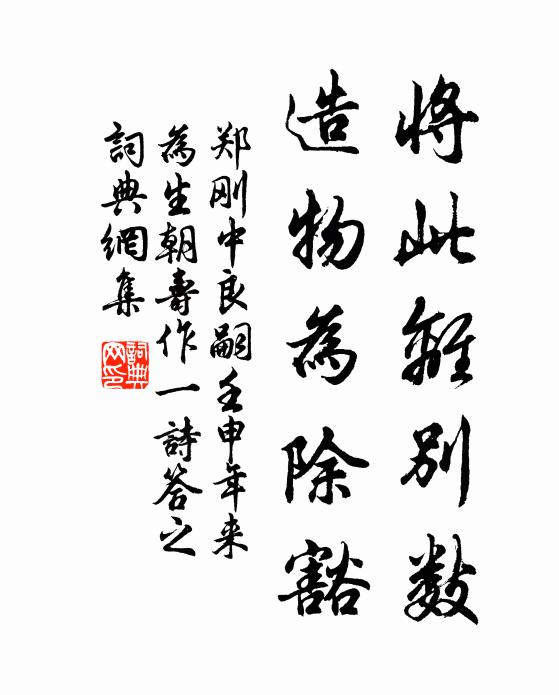 將此離別數
造物為除豁
郑刚中良嗣壬申年来
為生朝壽作一詩答之
詞典網集
詞典網印